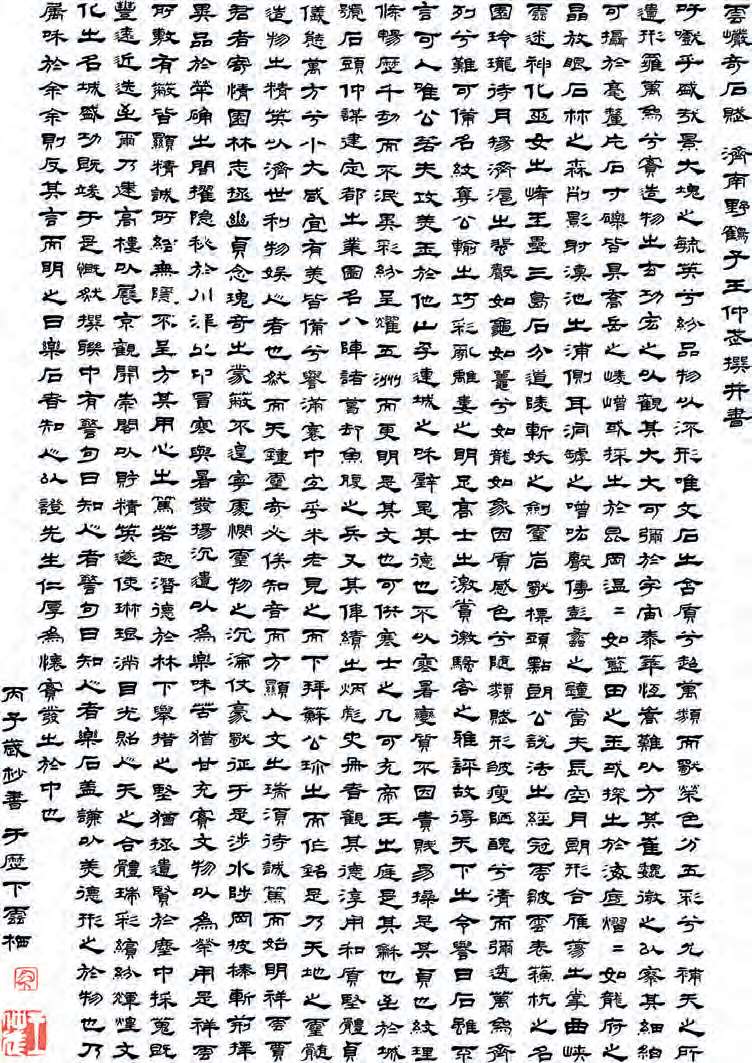 雲巘奇石賦 濟南野鶴子王仲武撰并書
吁嚱乎盛哉景大塊之毓英兮紛品物以流形唯文石之含質兮超萬類而獻榮色分五彩兮允補天之所
遺形羅萬象兮實造物之玄功宏之以觀其大大可彌於宇宙泰華恆嵩難以方其崔巍微之以察其細細
可攝於毫釐片石寸礫皆具喬岳之崚嶒或採之於昆岡溫〻如藍田之玉或探之於海底熠〻如龍府之
晶放眼石林之森削影射漢池之浦側耳洞罅之噌吰響傳彭蠡之鐘當夫長空月朗形合雁蕩之掌曲峽
雲迷神化巫女之峰王壘三島石分道陵斬妖之劍靈岩獻標頭點朗公說法之經冠雲皴雲表蘇杭之名
園玲瓏待月揚濟滬之譽聲如龜如鼉兮如龍如象因質感色兮隨類賦形皴瘦陋醜兮清而彌透萬象齊
列兮難可備名紋奪公輸之巧彩亂離婁之明足高士之激賞徵騷客之雅評故得天下之令譽曰石雖不
言可人唯公若夫攻美玉於他山孕連城之珠璧是其德也不以寒暑變質不因貴賤易操是其貞也紋理
條暢歷千劫而不泯異彩紛呈耀五洲而更明是其文也可供寒士之几可充帝王之庭是其龢也至於城
號石頭仲謀建定都之業圖名八陣諸葛却魚腹之兵又其偉績之炳彪史冊者觀其德淳用和質堅體貞
儀態萬方兮小大咸宜有美皆備兮譽滿寰中宜乎米老見之而下拜蘇公珍之而作銘是乃天地之靈髓
造物之精英以濟世利物娛心者也然而天鍾靈奇必俟知音而方顯人文之瑞須待誠篤而始明祥雲賈
君者寄情園林志拯幽貞念瑰奇之蒙蔽不遑寧處憫靈物之沉淪仗豪獻征于是涉水陟岡披榛斬荊擇
異品於犖确之間擢隱秘於川冒寒與暑發揚沉遺以為樂味苦猶甘充實文物以為榮用是祥雲
所敷有蔽皆顯精誠所結無隱不呈方其用心之篤若起潛德於林下舉措之堅猶拯遺賢於塵中採蒐既
豐遠近迭至爾乃建高樓以展京觀開崇閣以貯精英遂使琳琅滿目光貽人天之合體瑞彩繽紛輝煌文
化之名城盛功既竣于是慨然撰聯中有警句曰知心者警句曰知人者樂石盖謙以美德形之於物也乃
屬味於余余則反其言而明之曰樂石者知心以證先生仁厚為懷實發之於中也
丙子歲杪書于歷下雲栖